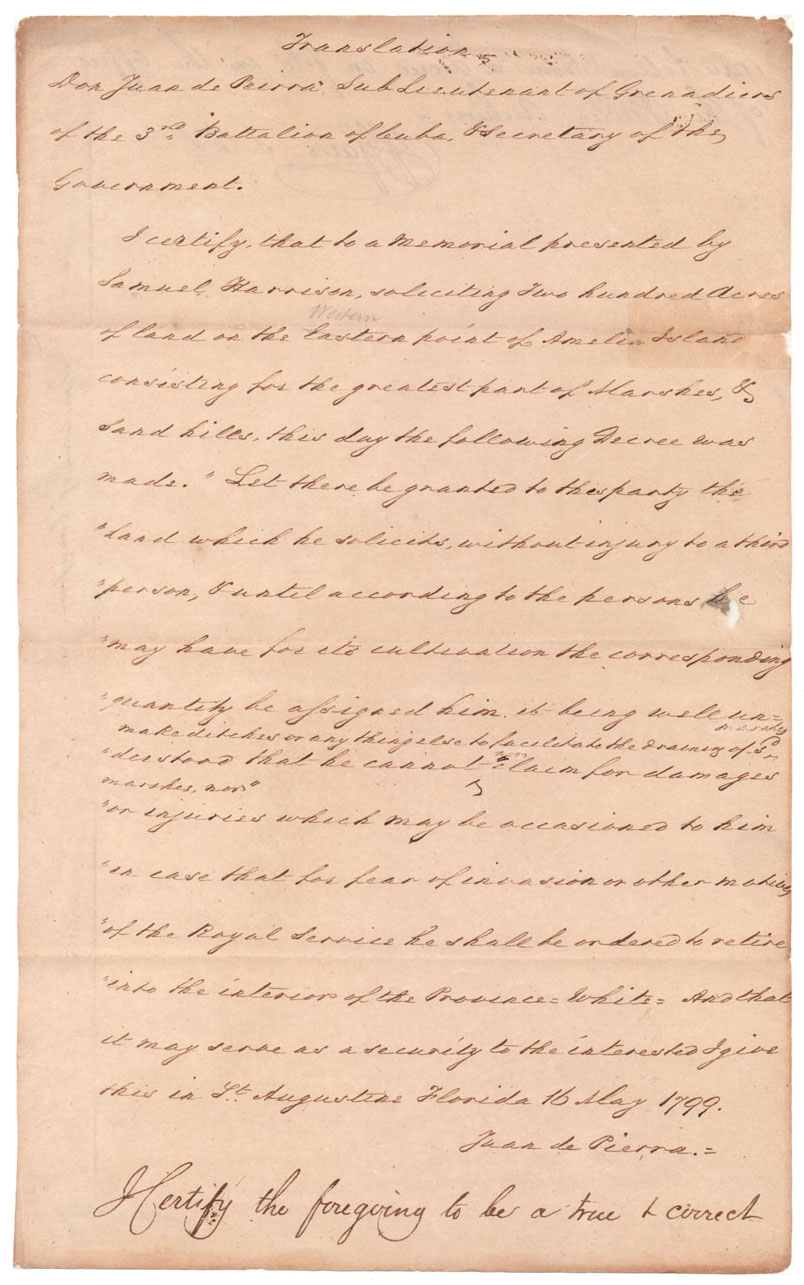 Translation
Don Juan de Pierra SubLieutenant of Grenadiers
of the 3rd Battalion of Cuba, & Secretary of the
Government.
I certify, that to a Memorial presented by
Samuel Harrison, soliciting Two hundred Acres
Western
of land on the Eastern point of Amelia Island
consisting for the greatest part of Marshes, &
Sand hills, this day the following Decree was
made. "Let there be granted to this party the
"land which he solicits, without injury to a third
"person, & until according to the persons he
"may have for its cultivation the corresponding
"quantity be assigned him. it being well un=
make ditches or any thing else to facilitate the draining of sd marshes
"derstood that he cannot claim for damages
marshes, nor"
"or injuries which may be occasioned to him
"in case that for fear of invasion or other motives
"of the Royal Service he shall be ordered to retire
"into the interior of the Province = White = And that
it may serve as a security to the interested I give
this in St. Augustine Florida 16 May 1799.
Juan de Pierra. =
I Certify the foregoing to be a true & correct